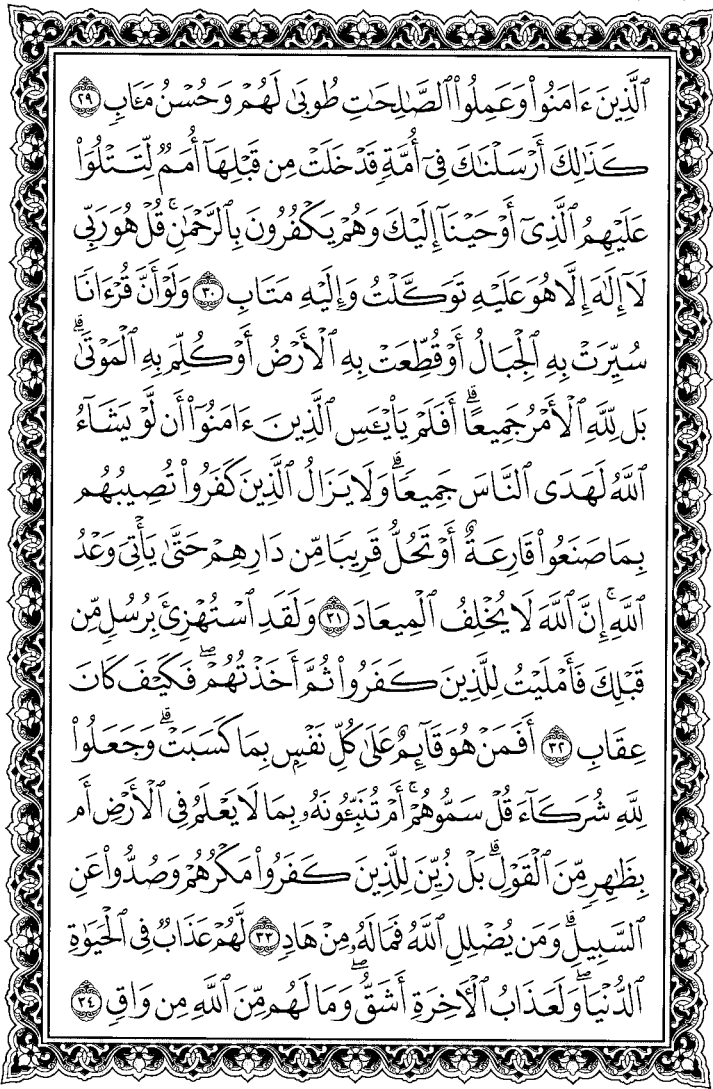 ٱلَّذِينَ ءَامَنُوا۟ وَعَمِلُوا۟ ٱلصَّٰلِحَٰتِ طُوبَىٰ لَهُمْ وَحُسْنُ مَـَٔابٍ ٢٩
كَذَٰلِكَ أَرْسَلْنَٰكَ فِىٓ أُمَّةٍ قَدْ خَلَتْ مِن قَبْلِهَآ أُمَمٌ لِّتَتْلُوَا۟
عَلَيْهِمُ ٱلَّذِىٓ أَوْحَيْنَآ إِلَيْكَ وَهُمْ يَكْفُرُونَ بِٱلرَّحْمَٰنِ ۚ قُلْ هُوَ رَبِّى
لَآ إِلَٰهَ إِلَّا هُوَ عَلَيْهِ تَوَكَّلْتُ وَإِلَيْهِ مَتَابِ ٣٠ وَلَوْ أَنَّ قُرْءَانًا
سُيِّرَتْ بِهِ ٱلْجِبَالُ أَوْ قُطِّعَتْ بِهِ ٱلْأَرْضُ أَوْ كُلِّمَ بِهِ ٱلْمَوْتَىٰ ۗ
بَل لِّلَّهِ ٱلْأَمْرُ جَمِيعًا ۗ أَفَلَمْ يَا۟يْـَٔسِ ٱلَّذِينَ ءَامَنُوٓا۟ أَن لَّوْ يَشَآءُ
ٱللَّهُ لَهَدَى ٱلنَّاسَ جَمِيعًا ۗ وَلَا يَزَالُ ٱلَّذِينَ كَفَرُوا۟ تُصِيبُهُم
بِمَا صَنَعُوا۟ قَارِعَةٌ أَوْ تَحُلُّ قَرِيبًا مِّن دَارِهِمْ حَتَّىٰ يَأْتِىَ وَعْدُ
ٱللَّهِ ۚ إِنَّ ٱللَّهَ لَا يُخْلِفُ ٱلْمِيعَادَ ٣١ وَلَقَدِ ٱسْتُهْزِئَ بِرُسُلٍ مِّن
قَبْلِكَ فَأَمْلَيْتُ لِلَّذِينَ كَفَرُوا۟ ثُمَّ أَخَذْتُهُمْ ۖ فَكَيْفَ كَانَ
عِقَابِ ٣٢ أَفَمَنْ هُوَ قَآئِمٌ عَلَىٰ كُلِّ نَفْسٍۭ بِمَا كَسَبَتْ ۗ وَجَعَلُوا۟
لِلَّهِ شُرَكَآءَ قُلْ سَمُّوهُمْ ۚ أَمْ تُنَبِّـُٔونَهُۥ بِمَا لَا يَعْلَمُ فِى ٱلْأَرْضِ أَم
بِظَٰهِرٍ مِّنَ ٱلْقَوْلِ ۗ بَلْ زُيِّنَ لِلَّذِينَ كَفَرُوا۟ مَكْرُهُمْ وَصُدُّوا۟ عَنِ
ٱلسَّبِيلِ ۗ وَمَن يُضْلِلِ ٱللَّهُ فَمَا لَهُۥ مِنْ هَادٍ ٣٣ لَّهُمْ عَذَابٌ فِى ٱلْحَيَوٰةِ
ٱلدُّنْيَا ۖ وَلَعَذَابُ ٱلْءَاخِرَةِ أَشَقُّ ۖ وَمَا لَهُم مِّنَ ٱللَّهِ مِن وَاقٍ ٣٤